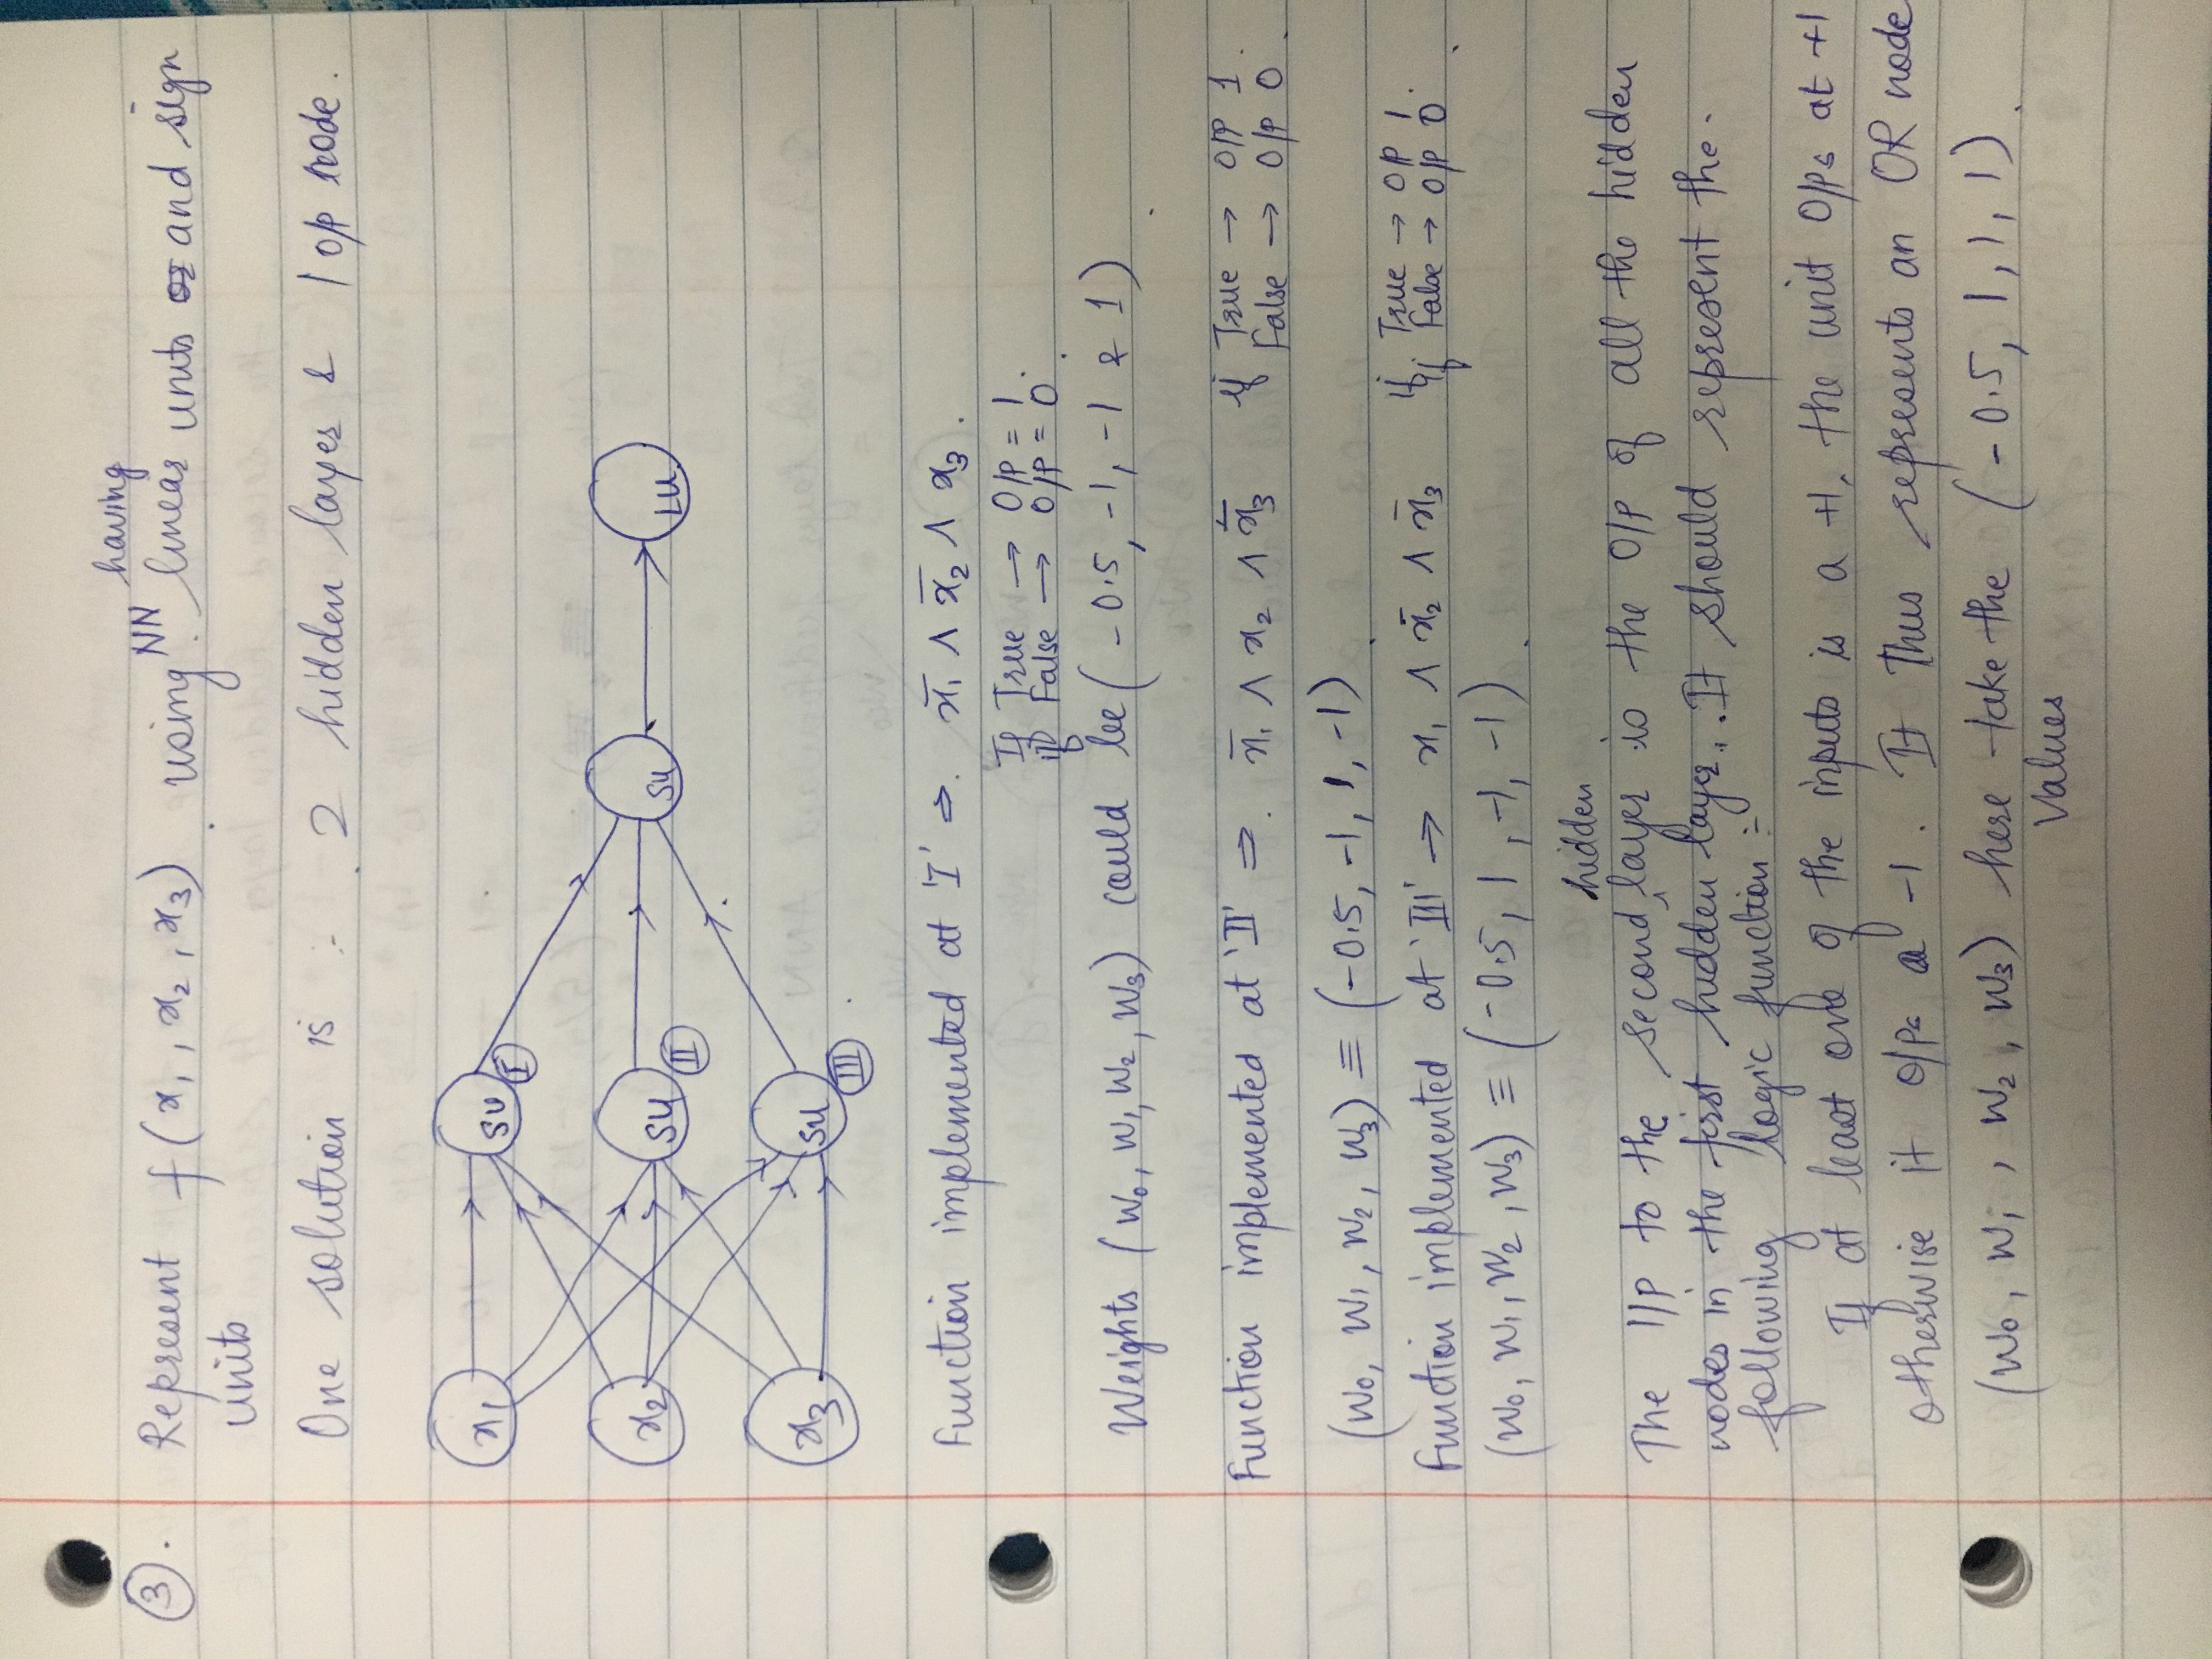 3. Represent f(x₁, x₂, x₃) using NN having linear units and sign
units
One solution is :- 2 hidden layer & 1 o/p node.
x₁ SU I
x₂ SU II SU LU
x₃ SU III
Function implemented at 'I' ⇒ x̄₁ ∧ x̄₂ ∧ x₃.
If True → O/P = 1.
if False → O/P = 0.
Weights (w₀, w₁, w₂, w₃) could be (-0.5, -1, -1 & 1)
Function implemented at 'II' ⇒ x̄₁ ∧ x₂ ∧ x̄₃ if True → O/P 1.
False → O/P 0.
(w₀, w₁, w₂, w₃) ≡ (-0.5, -1, 1, -1).
Function implemented at 'III' → x₁ ∧ x̄₂ ∧ x̄₃ if True → O/P 1.
if False → O/P 0.
(w₀, w₁, w₂, w₃) ≡ (-0.5, 1, -1, -1).
The I/P to the second hidden layer is the O/P of all the hidden
nodes in the first hidden layer. It should represent the
following logic function :-
If at least one of the inputs is a +1, the unit O/Ps at +1
otherwise it O/Ps a -1. It Thus represents an OR node
(w₀, w₁, w₂, w₃) here take the (-0.5, 1, 1, 1).
Values